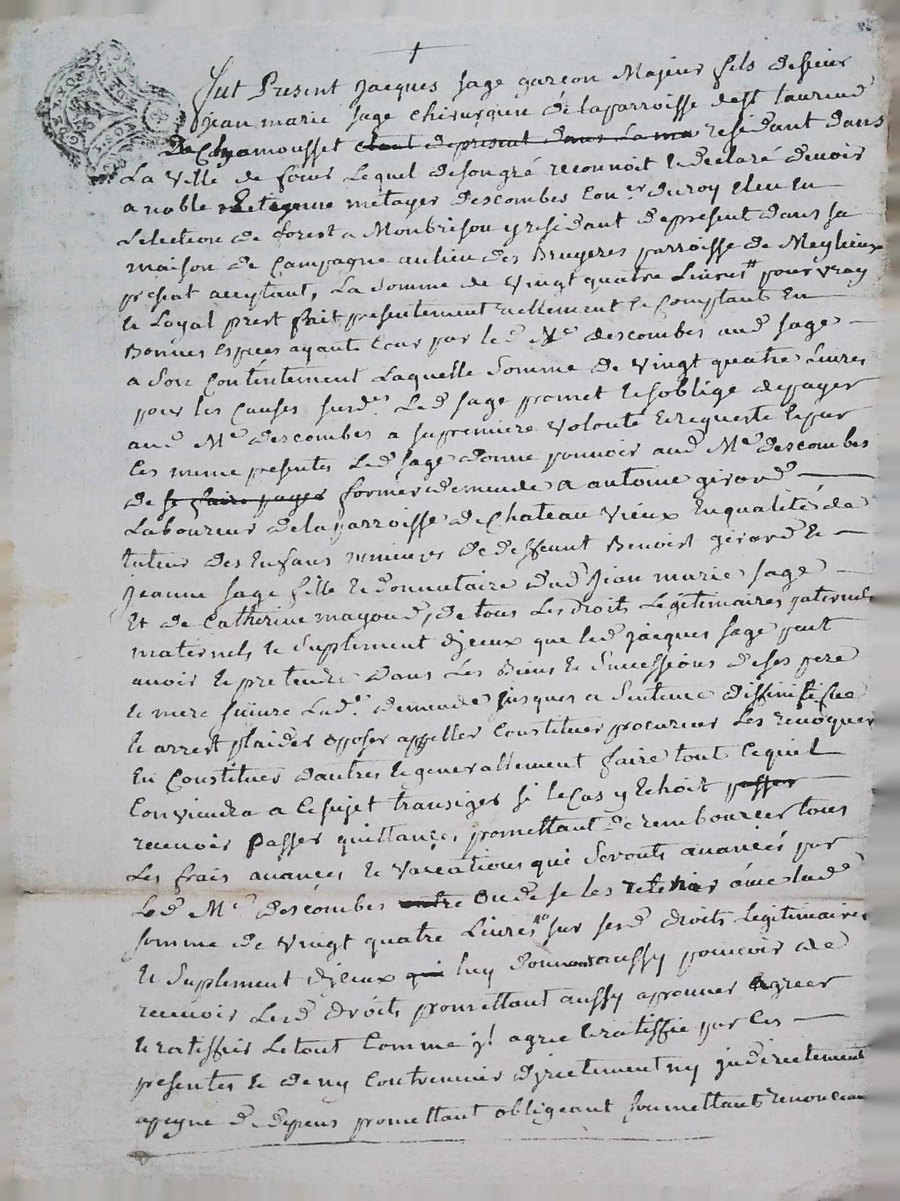 Fut Present Jacques Sage garçon Majeur fils de sieur
Jean marie Sage chirurgien de la parroisse de St Laurend
De Chamousset etant de present dans la ma residant dans
La Ville de Lequel de son gré reconnoit et declare devoir
a noble Etienne metayer descombes Coner du roy Eleu En
Lelection de forest a Monbrison y residant de present dans sa
maison de Campagne au lieu des Bruyeres parroisse de Meylieux
present acceptant, La Somme de Vingt quatre Livres pour vray
et Loyal prest fait presentement reellement et Comptant En
Bonnes Especes ayants Cour par led Me descombes aud Sage
a Son Contentement Laquelle Somme de Vingt quatre Livres
pour les Causes susdes Led Sage promet et soblige de payer
aud Me descombes a sa premiere Volonté et requeste et par
Ces meme presentes Led Sage donne pouvoir aud Me descombes
de se faire payer former demende a antoine girard
Laboureur de la parroisse de Chateau Vieux En qualité de
tuteur des Enfans mineurs de deffeunt Benoist girard et
Jeanne Sage fille et donnataire dud Jean marie Sage
Et de Catherine mayoud, de tous Les droits Legitimaires paternels
maternels et Suplement dJceux que led Jacques Sage peut
avoir et pretendre dans Les Biens et Successions de ses pere
et mere suivre Lade demende jusques a Sentence diffinitifve
et arrest plaider opposer appeller Constituer procureur Les revoquer
En Constituer dautres et generallement faire tout Ce quil
Conviendra a Ce sujet transiger si le Cas y Echoit passer
recevoir passer quittance, promettant de rembourcer tous
Les frais avances et Vacations qui Seronts avancés par
Led Me descombes entre Ou de se les retenir avec lade
somme de Vingt quatre Livres sur sesd droits Legitimaires
et Suplement dJceux qui luy donnant aussy pouvoir de
recevoir Lesd droits promettant aussy aprouver Agreer
et ratiffier Le tout Comme jl agrée et ratiffie par Ces
presentes et de ny Contrevenir directement ny jndirectement
a peyne de depens promettant obligeant soumettant renoncant